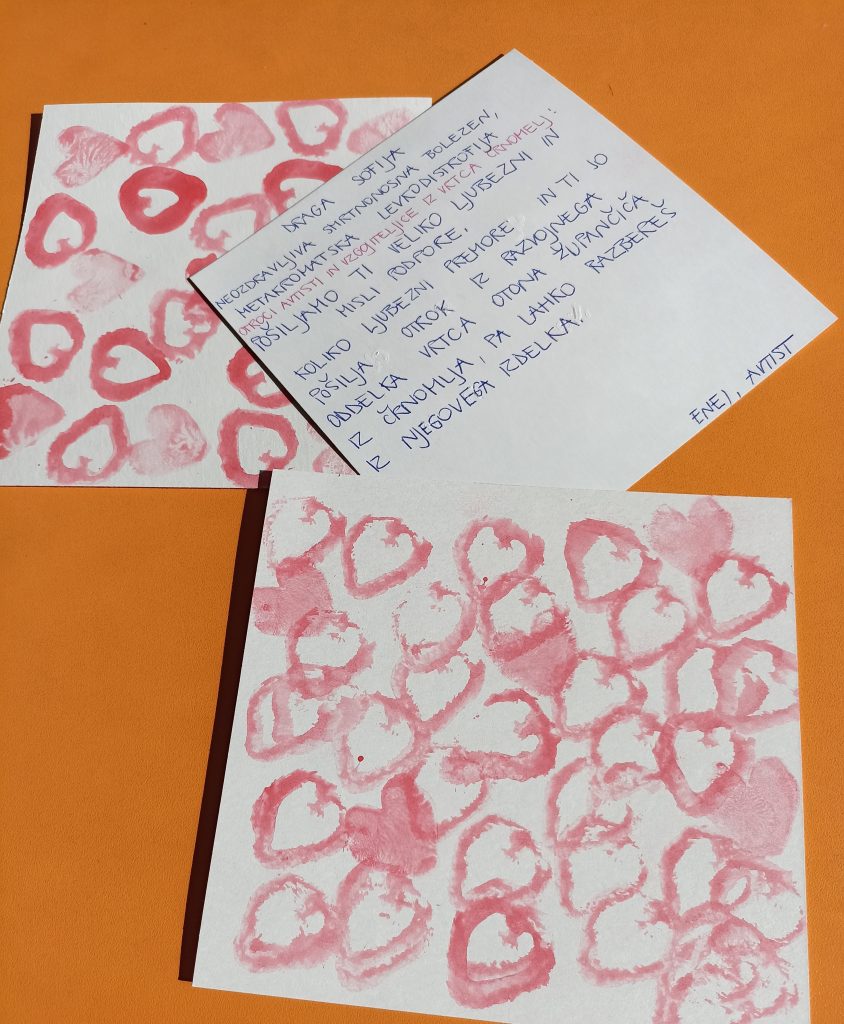 DRAGA SOFIJA
NEOZDRAVLJIVA SMRTNONOSNA BOLEZEN,
METAKROMATSKA LEVKODISTROFIJA
OTROCI AVTISTI IN VZGOJITELJICE IZ VRTCA ČRNOMELJ:
POŠILJAMO TI VELIKO LJUBEZNI IN
MISLI PODPORE.
KOLIKO LJUBEZNI PREMORE IN TI JO
POŠILJA OTROK IZ RAZVOJNEGA
ODDELKA VRTCA OTONA ŽUPANČIČA
IZ ČRNOMLJA, PA LAHKO RAZBEREŠ
IZ NJEGOVEGA IZDELKA.
ENEJ, AVTIST